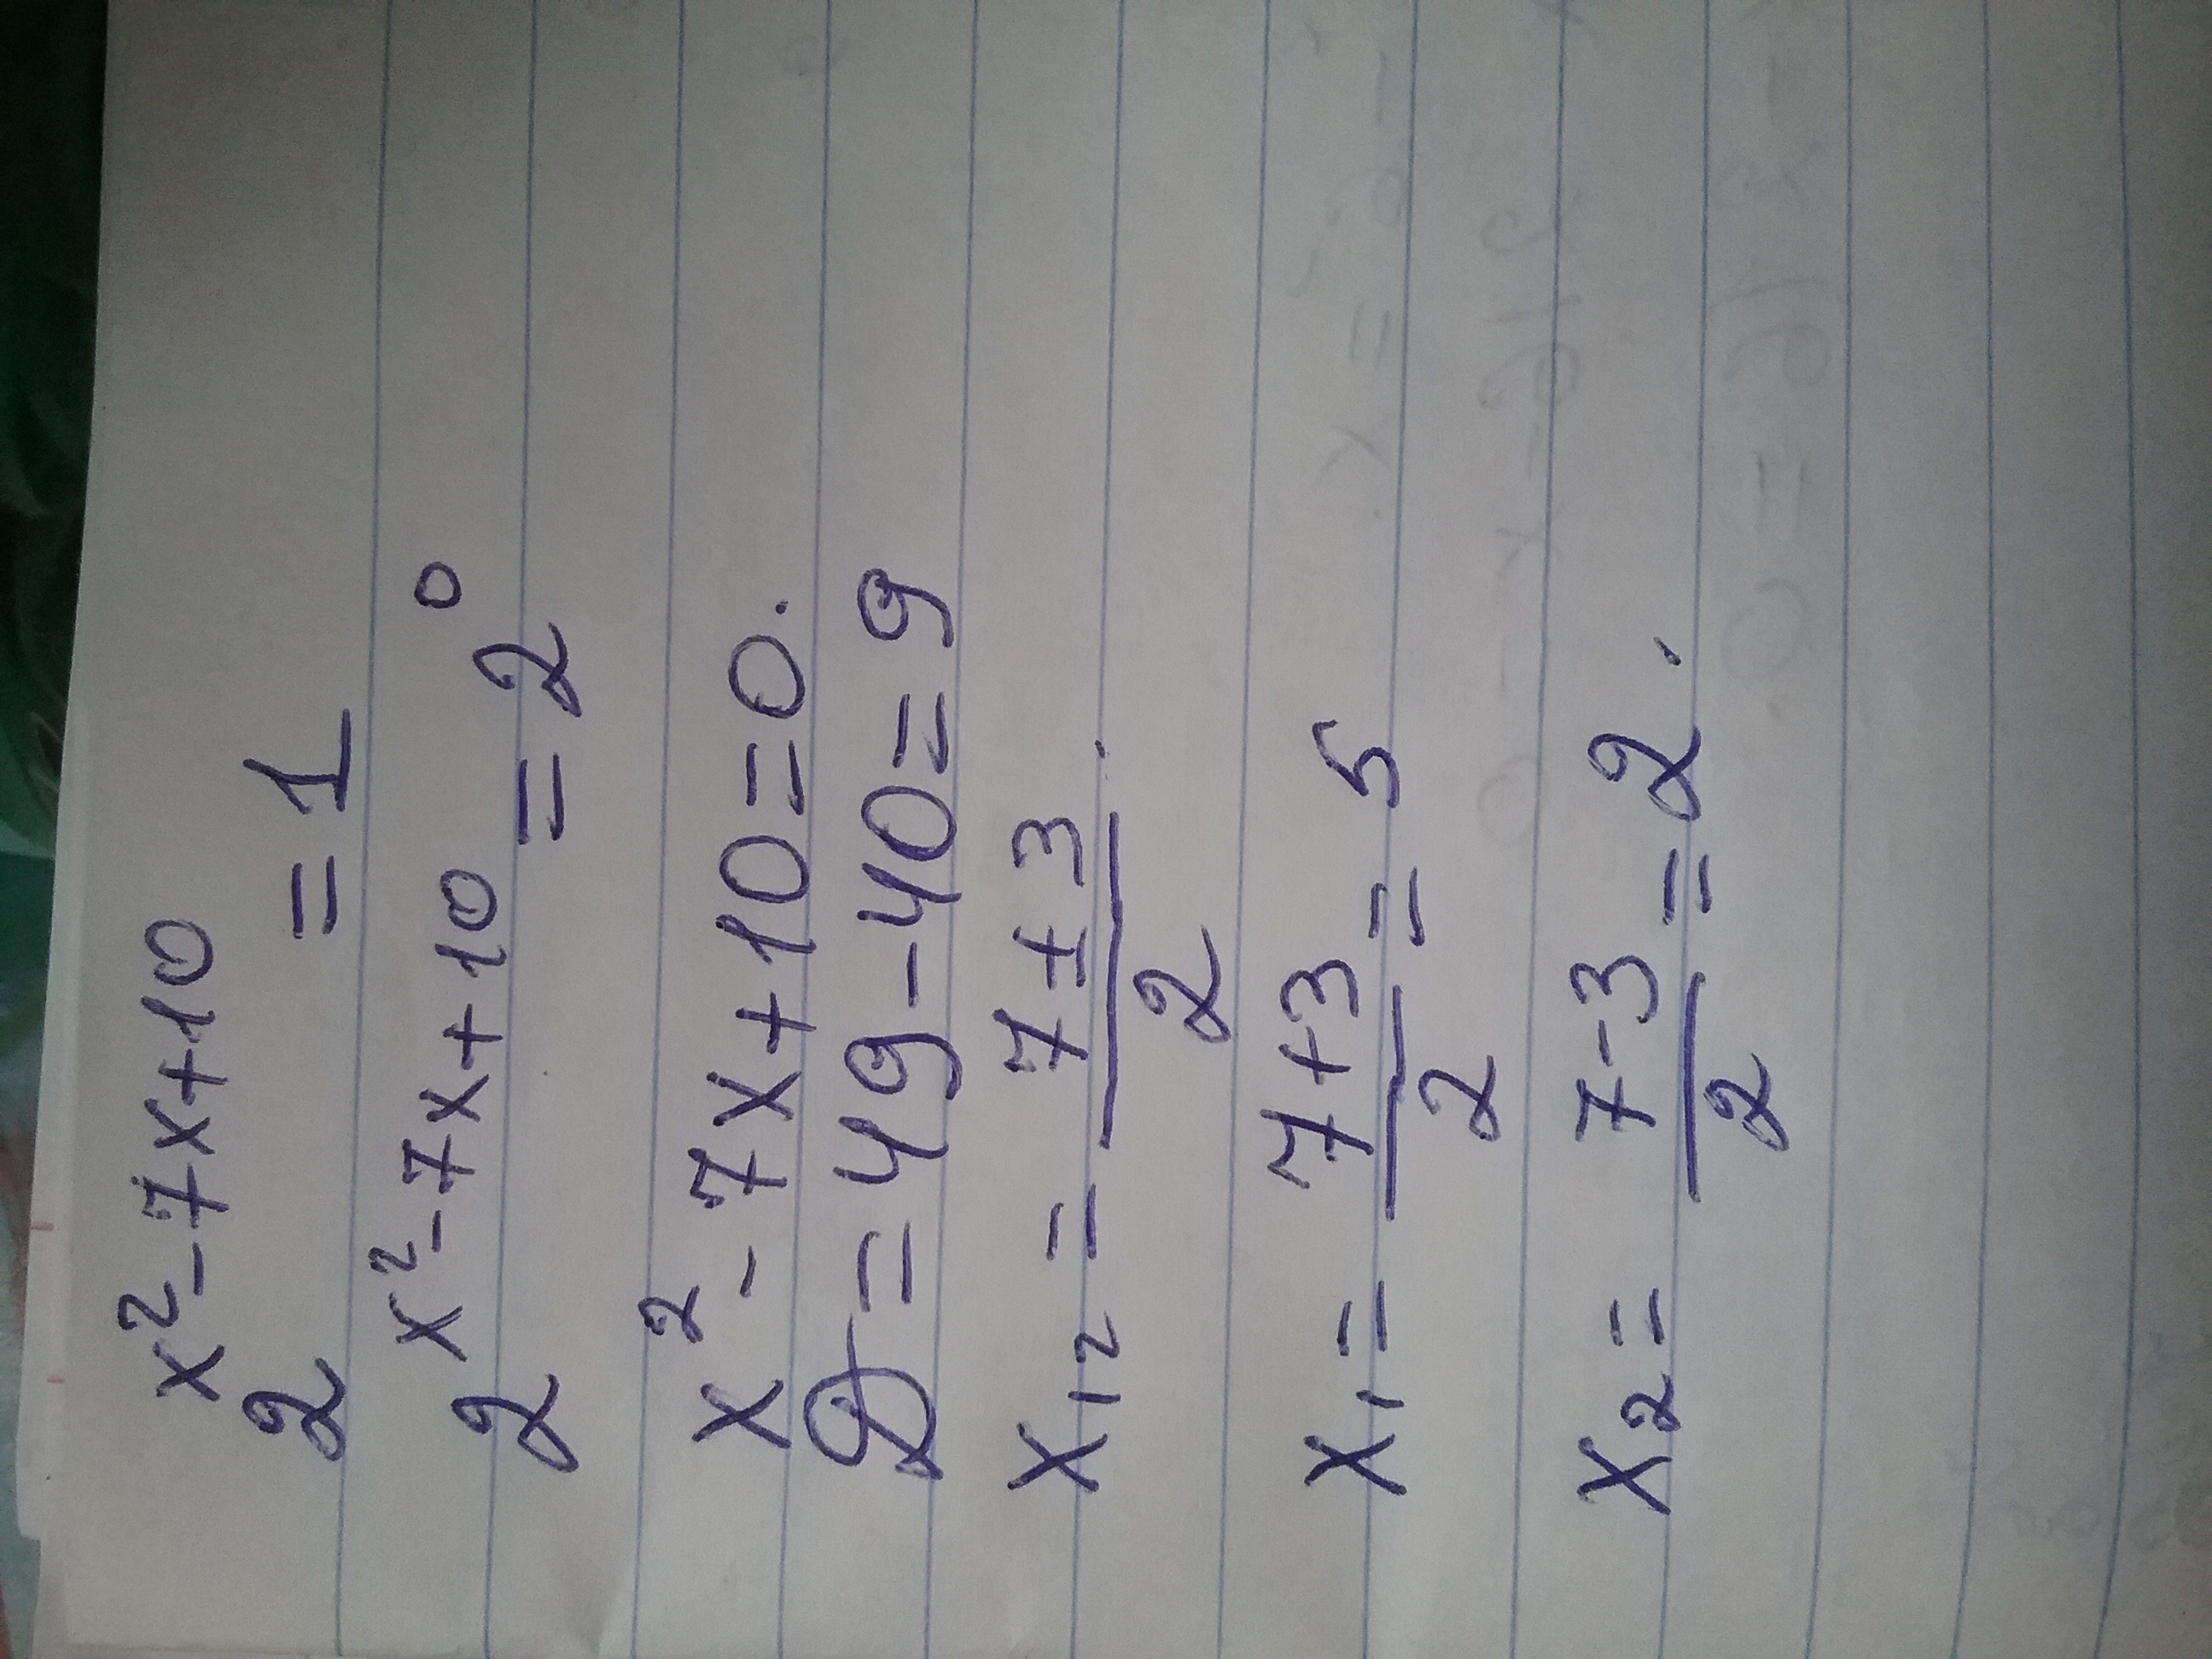 2^{x^2-7x+10} = 1
2^{x^2-7x+10} = 2^0
x^2 - 7x + 10 = 0.
D = 49 - 40 = 9
x_{12} = \frac{7 ± 3}{2}.
x_1 = \frac{7+3}{2} = 5
x_2 = \frac{7-3}{2} = 2.